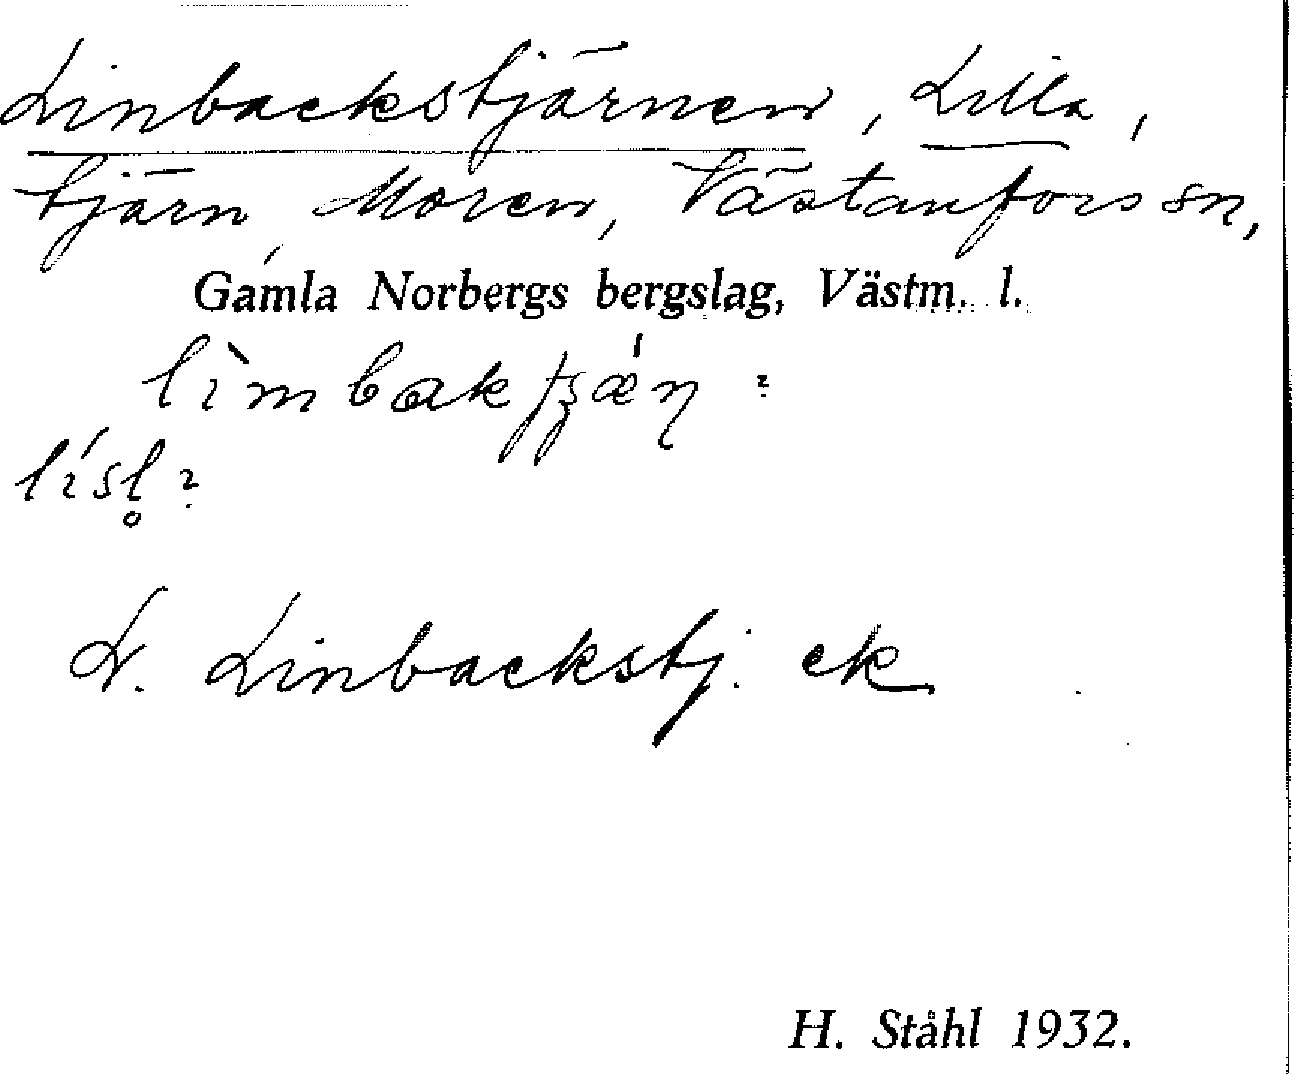 Linbackstjärnen, Lilla,
tjärn, Moren, Västanfors sn,
Gamla Norbergs bergslag, Västm. l.
lìmbak
lísl̥ :
L. Linbackstj. ek
H. Ståhl 1932.